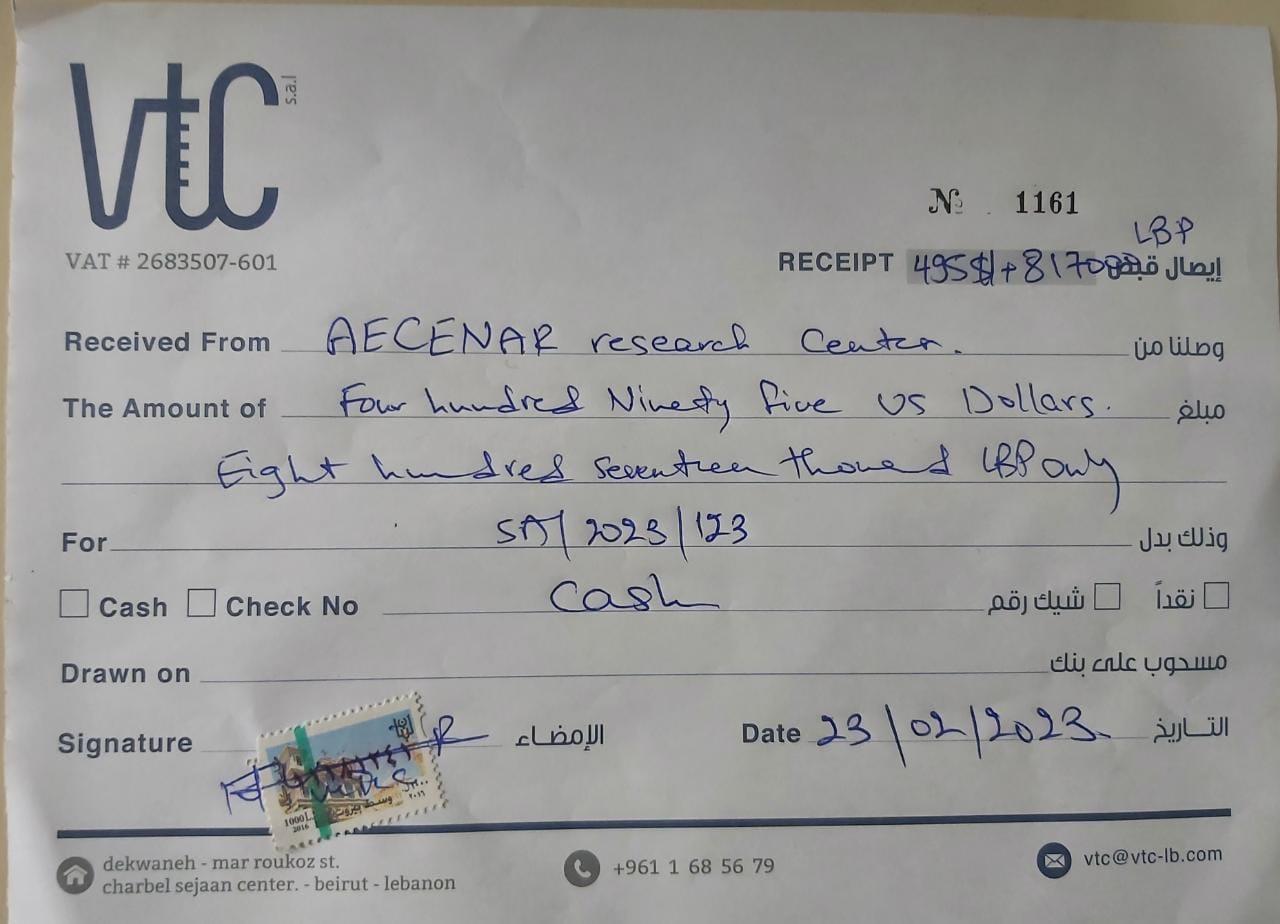 vtc s.a.l
VAT # 2683507-601
№ 1161
LBP
RECEIPT 495$ + 817000 إيصال قبض
Received From AECENAR research Center. وصلنا من
The Amount of Four hundred Ninety five US Dollars. مبلغ
Eight hundred seventeen thousand LBP only
For SA/2023/123 وذلك بدل
Cash Check No Cash شيك رقم نقداً
Drawn on مسحوب على بنك
Signature الإمضاء Date 23/02/2023 التاريخ
وسط بيروت
1000 L.L.
2016 ٢٠١٦
dekwaneh - mar roukoz st.
charbel sejaan center. - beirut - lebanon
+961 1 68 56 79
vtc@vtc-lb.com